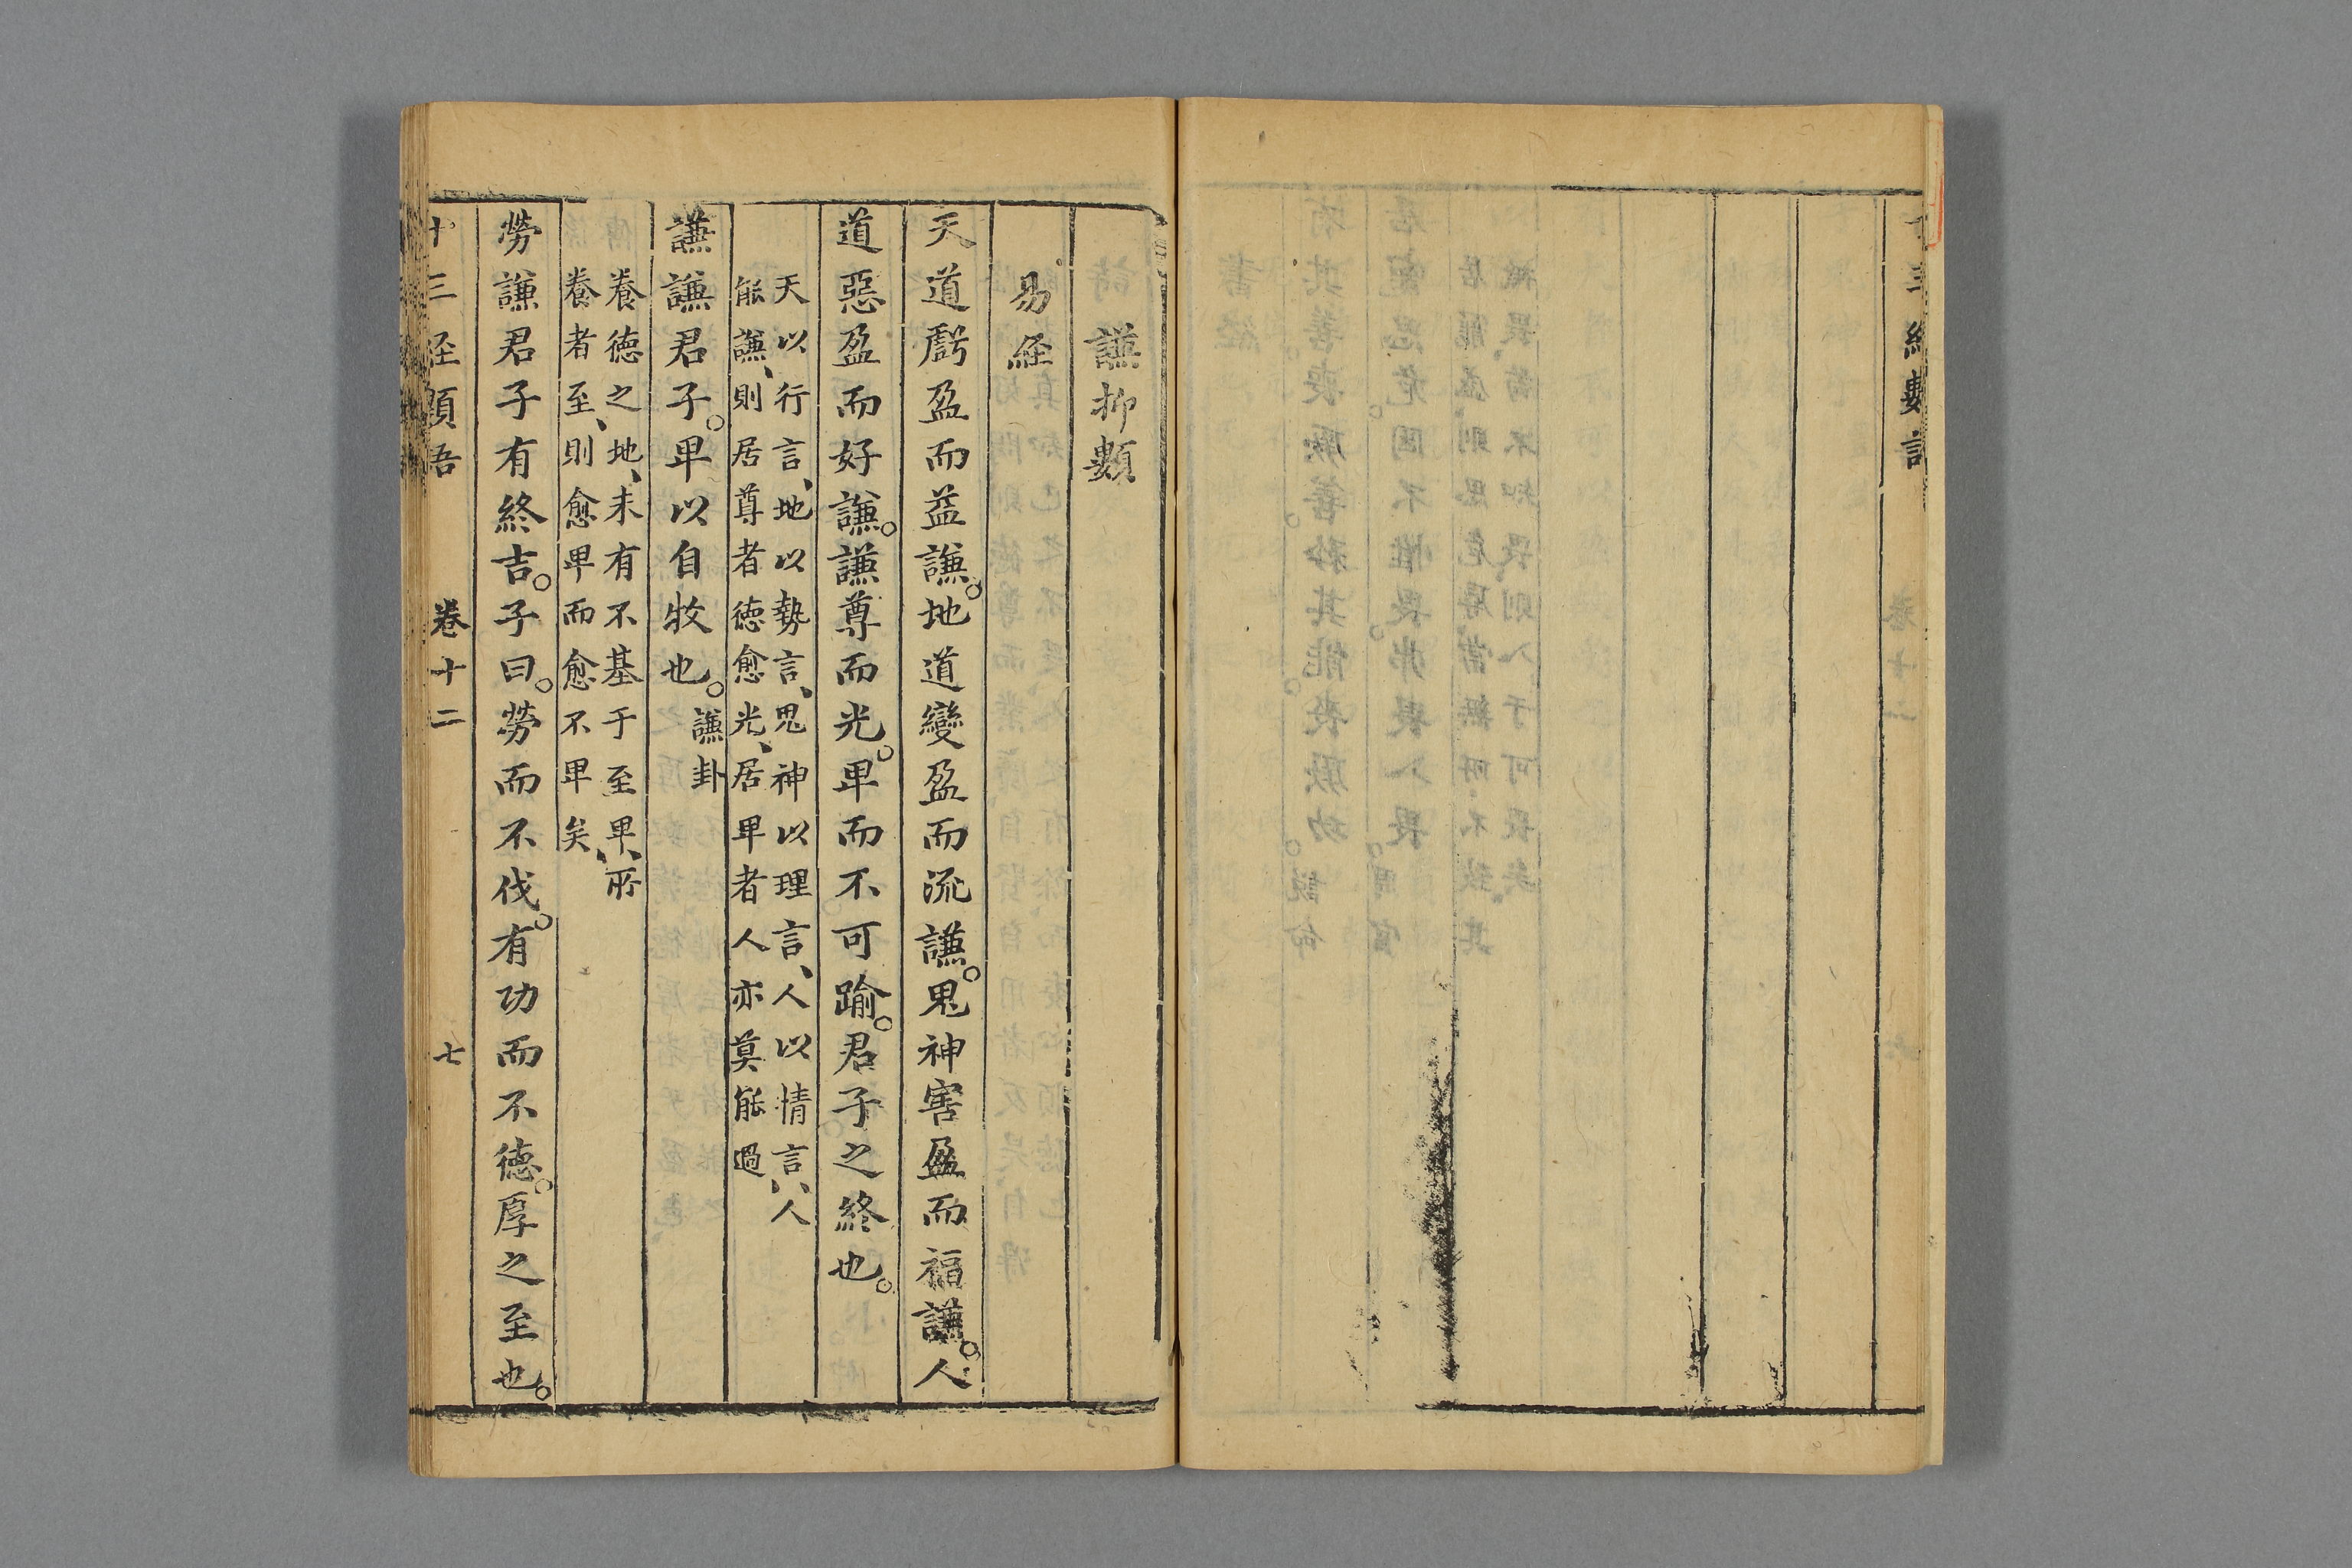 謙抑類
易經
天道虧盈而益謙。地道變盈而流謙。鬼神害盈而福謙。人
道惡盈而好謙。謙尊而光。卑而不可踰。君子之終也。
天以行言、地以勢言、鬼神以理言、人以情言、人
能謙、則居尊者德愈光、居卑者人亦莫能過
謙謙君子。卑以自牧也。謙卦
養德之地、未有不基于至卑、所
養者至、則愈卑而愈不卑矣、
勞謙君子有終吉。子曰。勞而不伐。有功而不德。厚之至也。
十三經類語 卷十二 七